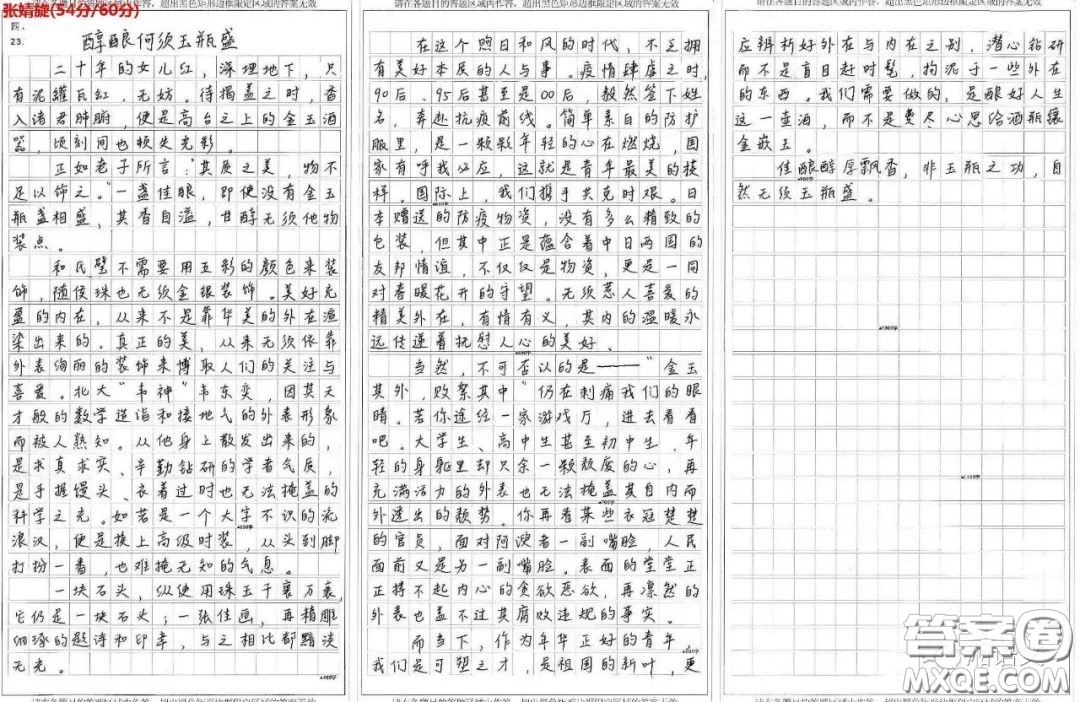 请在各题目的答题区域内作答，超出黑色矩形边框限定区域的答案无效
张婧旋(54分/60分)
四、
23.
醇酿何须玉瓶盛
二十年的女儿红，深埋地下，只
有泥罐瓦缸，无妨。待揭盖之时，香
入诸君肺腑，便是高台之上的金玉酒
器，顷刻间也顿失光彩。
正如老子所言："其质之美，物不
足以饰之。"一盏佳酿，即便没有金玉
瓶盏相盛，其香自溢，甘醇无须他物
装点。
和氏璧不需要用五彩的颜色来装
饰，随侯珠也无须金银装饰。美好充
盈的内在，从来不是靠华美的外在渲
染出来的。真正的美，从来无须依靠
外表绚丽的装饰来博取人们的关注与
喜爱。北大"韦神"韦东奕，因其天
才般的数学造诣和接地气的外表形象
而被人熟知。从他身上散发出来的，
是求真求实、辛勤钻研的学者气质，
是手握馒头、衣着过时也无法掩盖的
科学之光。如若是一个大字不识的流
浪汉，便是换上高级时装，从头到脚
打扮一番，也难掩无知的气息。
一块石头，纵使用珠玉千裹万裹，
它仍是一块石头；一张佳画，再精雕
细琢的题诗和印章，与之相比都黯淡
无光。
请在各题目的答题区域内作答，超出黑色矩形边框限定区域的答案无效
在这个煦日和风的时代，不乏拥
有美好本质的人与事。疫情肆虐之时，
90后、95后甚至是00后，毅然签下姓
名，奔赴抗疫前线。简单素白的防护
服里，是一颗颗年轻的心在燃烧，国
家有呼我必应，这就是青年最美的模
样。国际上，我们携手共克时艰。日
本赠送的防疫物资，没有多么精致的
包装，但其中正是蕴含着中日两国的
友邦情谊，不仅仅是物资，更是一同
对春暖花开的守望。无须惹人喜爱的
精美外在，有情有义，其内的温暖永
远传递着抚慰人心的美好。
当然，不可否认的是——"金玉
其外，败絮其中"仍在刺痛我们的眼
睛。若你途经一家游戏厅，进去看看
吧。大学生、高中生甚至初中生，年
轻的身躯里却只余一颗颓废的心，再
充满活力的外表也无法掩盖其自内而
外透出的颓势。你再看某些衣冠楚楚
的官员，面对阿谀者一副嘴脸，人民
面前又是另一副嘴脸。表面的堂堂正
正掩不起内心的贪欲恶欲，再凛然的
外表也盖不过其腐败违规的事实。
而当下，作为年华正好的青年，
我们是可塑之才，是祖国的新叶，更
请在各题目的答题区域内作答，超出黑色矩形边框限定区域的答案无效
应辨析好外在与内在之别，潜心钻研
而不是盲目赶时髦，拘泥于一些外在
的东西。我们需要做的，是酿好人生
这一壶酒，而不是更尽心思给酒瓶镶
金嵌玉。
佳酿醇厚飘香，非玉瓶之功，自
然无须玉瓶盛。
答案圈
MXQE.COM